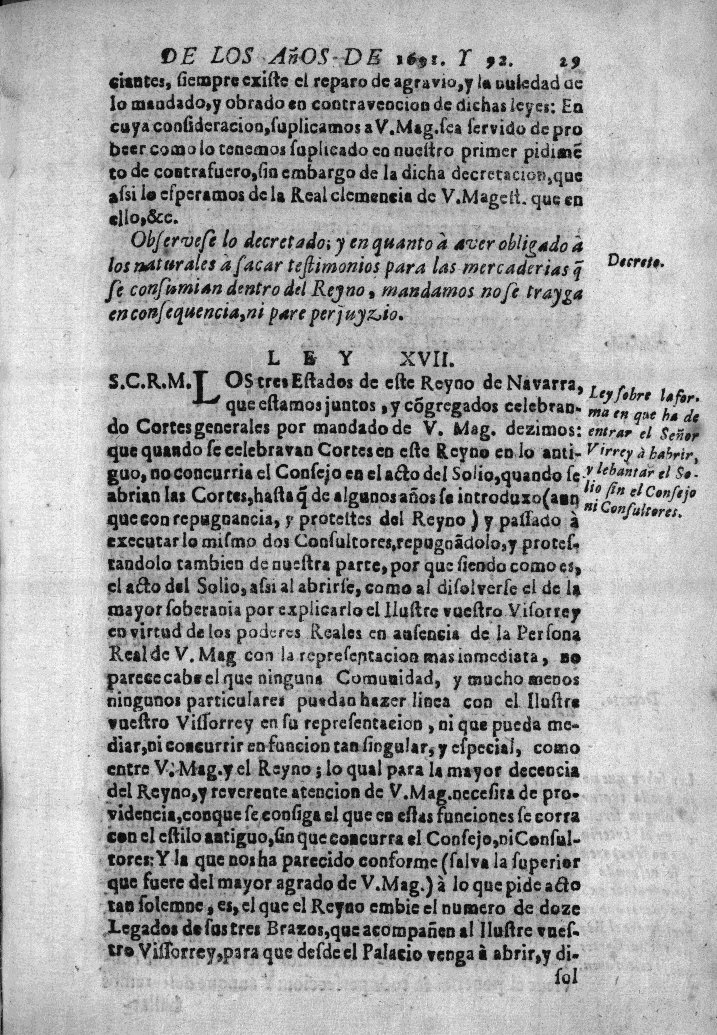 DE LOS AñOS DE 1691. Y 92. 29
ciantes, siempre existe el reparo de agravio,y la nuledad de
lo mandado,y obrado en contravencion de dichas leyes: En
cuya consideracion,suplicamos a V.Mag.sea servido de pro
beer como lo tenemos suplicado en nuestro primer pidimẽ
to de contrafuero,sin embargo de la dicha decretacion,que
assi lo esperamos de la Real clemencia de V.Magest. que en
ello,&c.
Observese lo decretado; y en quanto à aver obligado à
los naturales à sacar testimonios para las mercaderias q̃
se consumian dentro del Reyno, mandamos no se trayga
en consequencia,ni pare perjuyzio.
Decreto.
LEY XVII.
S.C.R.M. LOS tres Estados de este Reyno de Navarra,
que estamos juntos, y cõgregados celebran-
do Cortes generales por mandado de V. Mag. dezimos:
que quando se celebravan Cortes en este Reyno en lo anti-
guo, no concurria el Consejo en el acto del Solio,quando se
abrian las Cortes,hasta q̃ de algunos años se introduxo(aun
que con repugnancia, y protestes del Reyno) y passado à
executar lo mismo dos Consultores,repugnãdolo,y protes-
tandolo tambien de nuestra parte, por que siendo como es,
el acto del Solio,assi al abrirse, como al disolverse el de la
mayor soberania por explicarlo el Ilustre vuestro Visorrey
en virtud de los poderes Reales en ausencia de la Persona
Real de V. Mag con la representacion mas inmediata, no
parece cabe el que ninguna Comunidad, y mucho menos
ningunos particulares puedan hazer linea con el Ilustre
vuestro Vissorrey en su representacion, ni que pueda me-
diar,ni concurrir en funcion tan singular, y especial, como
entre V. Mag.y el Reyno; lo qual para la mayor decencia
del Reyno,y reverente atencion de V.Mag.necesita de pro-
videncia,conque se consiga el que en estas funciones se corra
con el estilo antiguo,sin que concurra el Consejo,ni Consul-
tores: Y la que nos ha parecido conforme (salva la superior
que fuere del mayor agrado de V.Mag.) à lo que pide acto
tan solemne, es, el que el Reyno embie el numero de doze
Legados de sus tres Brazos,que acompañen al Ilustre vues-
tro Vissorrey,para que desde el Palacio venga à abrir,y di-
sol
Ley sobre la for-
ma en que ha de
entrar el Señor
Virrey à habrir,
y lebantar el So-
lio sin el Consejo
ni Consultores.